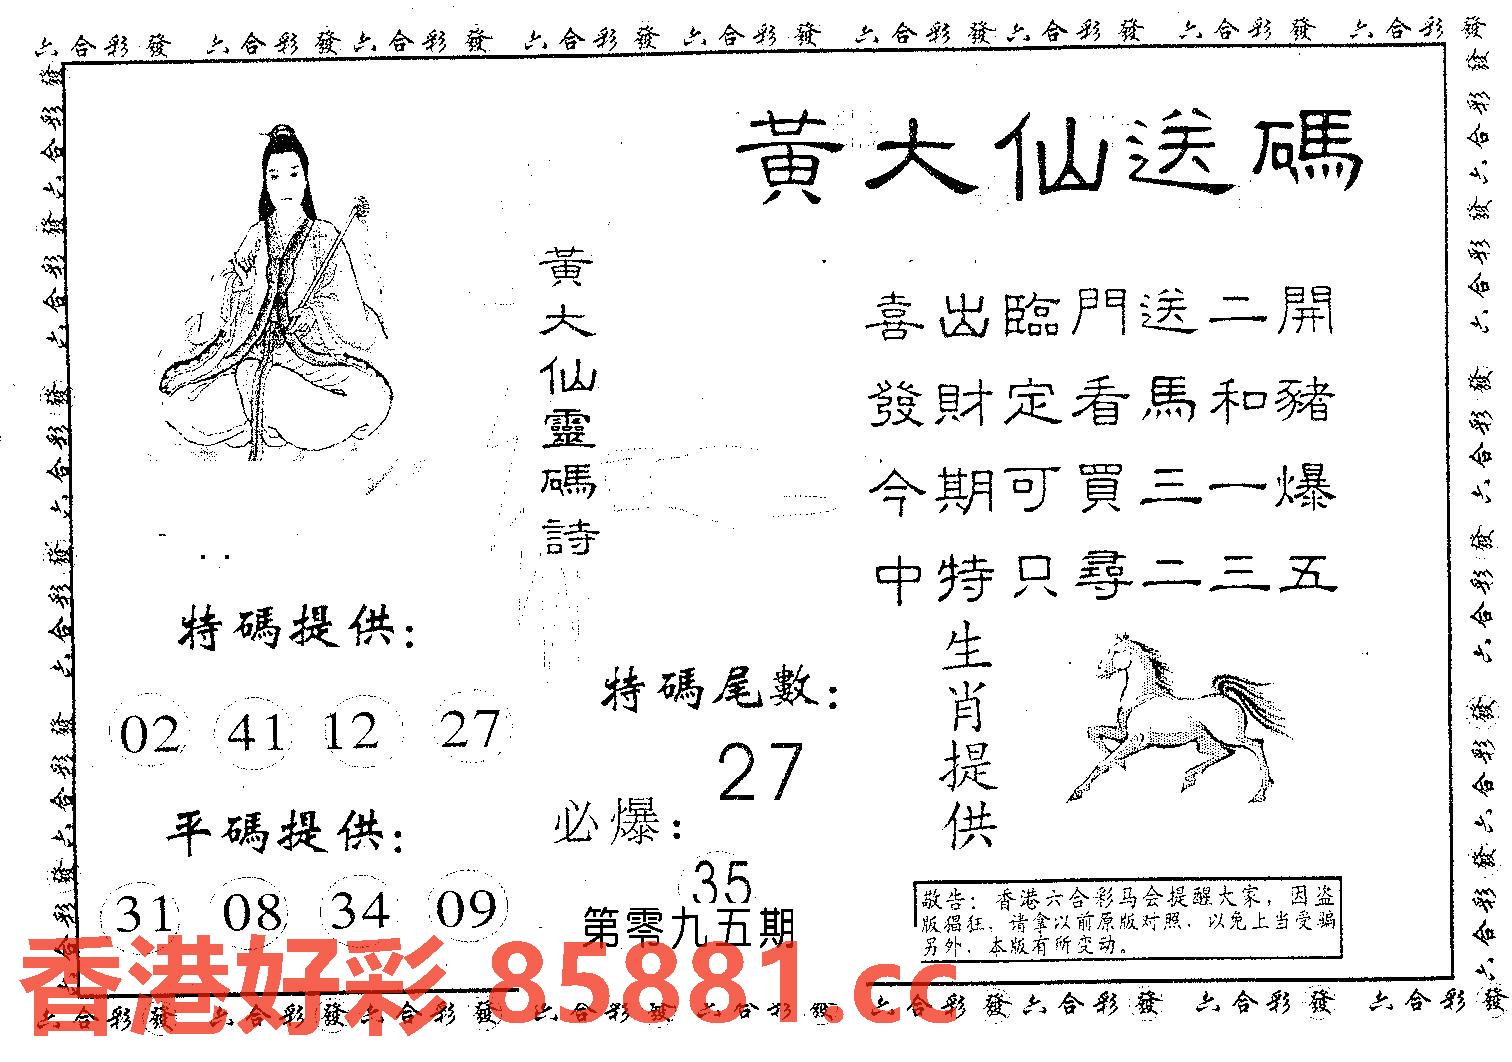 六合彩發 六合彩發六合彩發 六合彩發 六合彩發 六合彩發六合彩發 六合彩發 六合彩發
黃大仙送碼
黃大仙靈碼詩
喜出臨門送二開
發財定看馬和豬
今期可買三一爆
中特只尋二三五
特碼提供：
02 41 12 27
平碼提供：
31 08 34 09
特碼尾數：
27
必爆：
35
第零九五期
生肖提供
敬告：香港六合彩马会提醒大家，因盗
版猖狂，请拿以前原版对照，以免上当受骗
另外，本版有所变动。
香港好彩 85881.cc
六合彩發 六合彩發六合彩發 六合彩發 六合彩發 六合彩發六合彩發 六合彩發 六合彩發